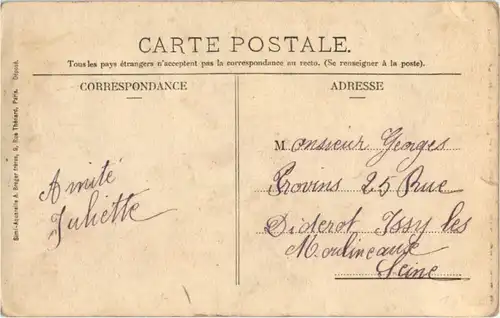 CARTE POSTALE.
Tous les pays étrangers n'acceptent pas la correspondance au recto. (Se renseigner à la poste).
CORRESPONDANCE
Amitié
Juliette
ADRESSE
Monsieur Georges
Provins 25 Rue
Diderot Issy les
Moulineaux
Seine
Semi-Aquarelle A. Breger frères, 9, Rue Thénard, Paris. Déposé.